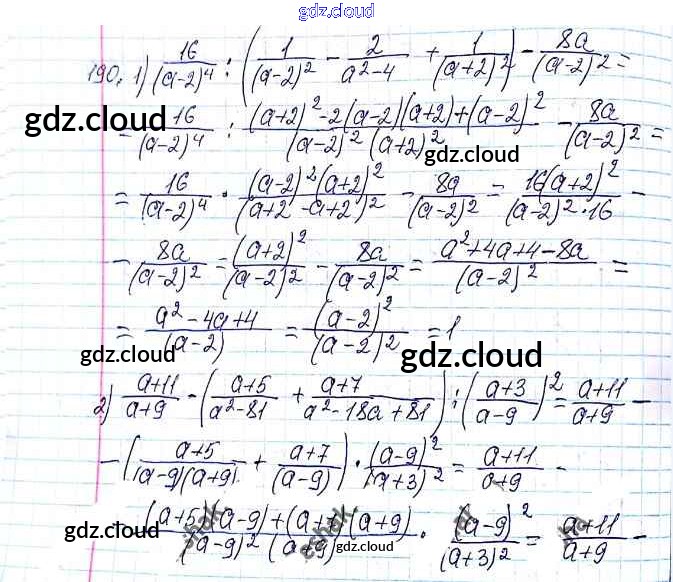 gdz.cloud
gdz.cloud
190. 1) 16/(a-2)^4 : (1/(a-2)^2 - 2/(a^2-4) + 1/(a+2)^2) - 8a/(a-2)^2 =
gdz.cloud
= 16/(a-2)^4 : ((a+2)^2-2(a-2)(a+2)+(a-2)^2)/((a-2)^2(a+2)^2) - 8a/(a-2)^2 =
gdz.cloud
gdz.cloud
= 16/(a-2)^4 · ((a-2)^2(a+2)^2)/(a+2-a+2)^2 - 8a/(a-2)^2 = 16(a+2)^2/((a-2)^2·16) -
- 8a/(a-2)^2 = (a+2)^2/(a-2)^2 - 8a/(a-2)^2 = (a^2+4a+4-8a)/(a-2)^2 =
= (a^2-4a+4)/(a-2) = (a-2)^2/(a-2)^2 = 1
gdz.cloud
gdz.cloud
gdz.cloud
2) (a+11)/(a+9) - ((a+5)/(a^2-81) + (a+7)/(a^2-18a+81)) : ((a+3)/(a-9))^2 = (a+11)/(a+9) -
- ((a+5)/((a-9)(a+9)) + (a+7)/(a-9)) · (a-9)^2/(a+3)^2 = (a+11)/(a+9) -
- ((a+5)(a-9)+(a+7)(a+9))/((a-9)^2(a+9)) · (a-9)^2/(a+3)^2 = (a+11)/(a+9) -
gdz.cloud
gdz.cloud